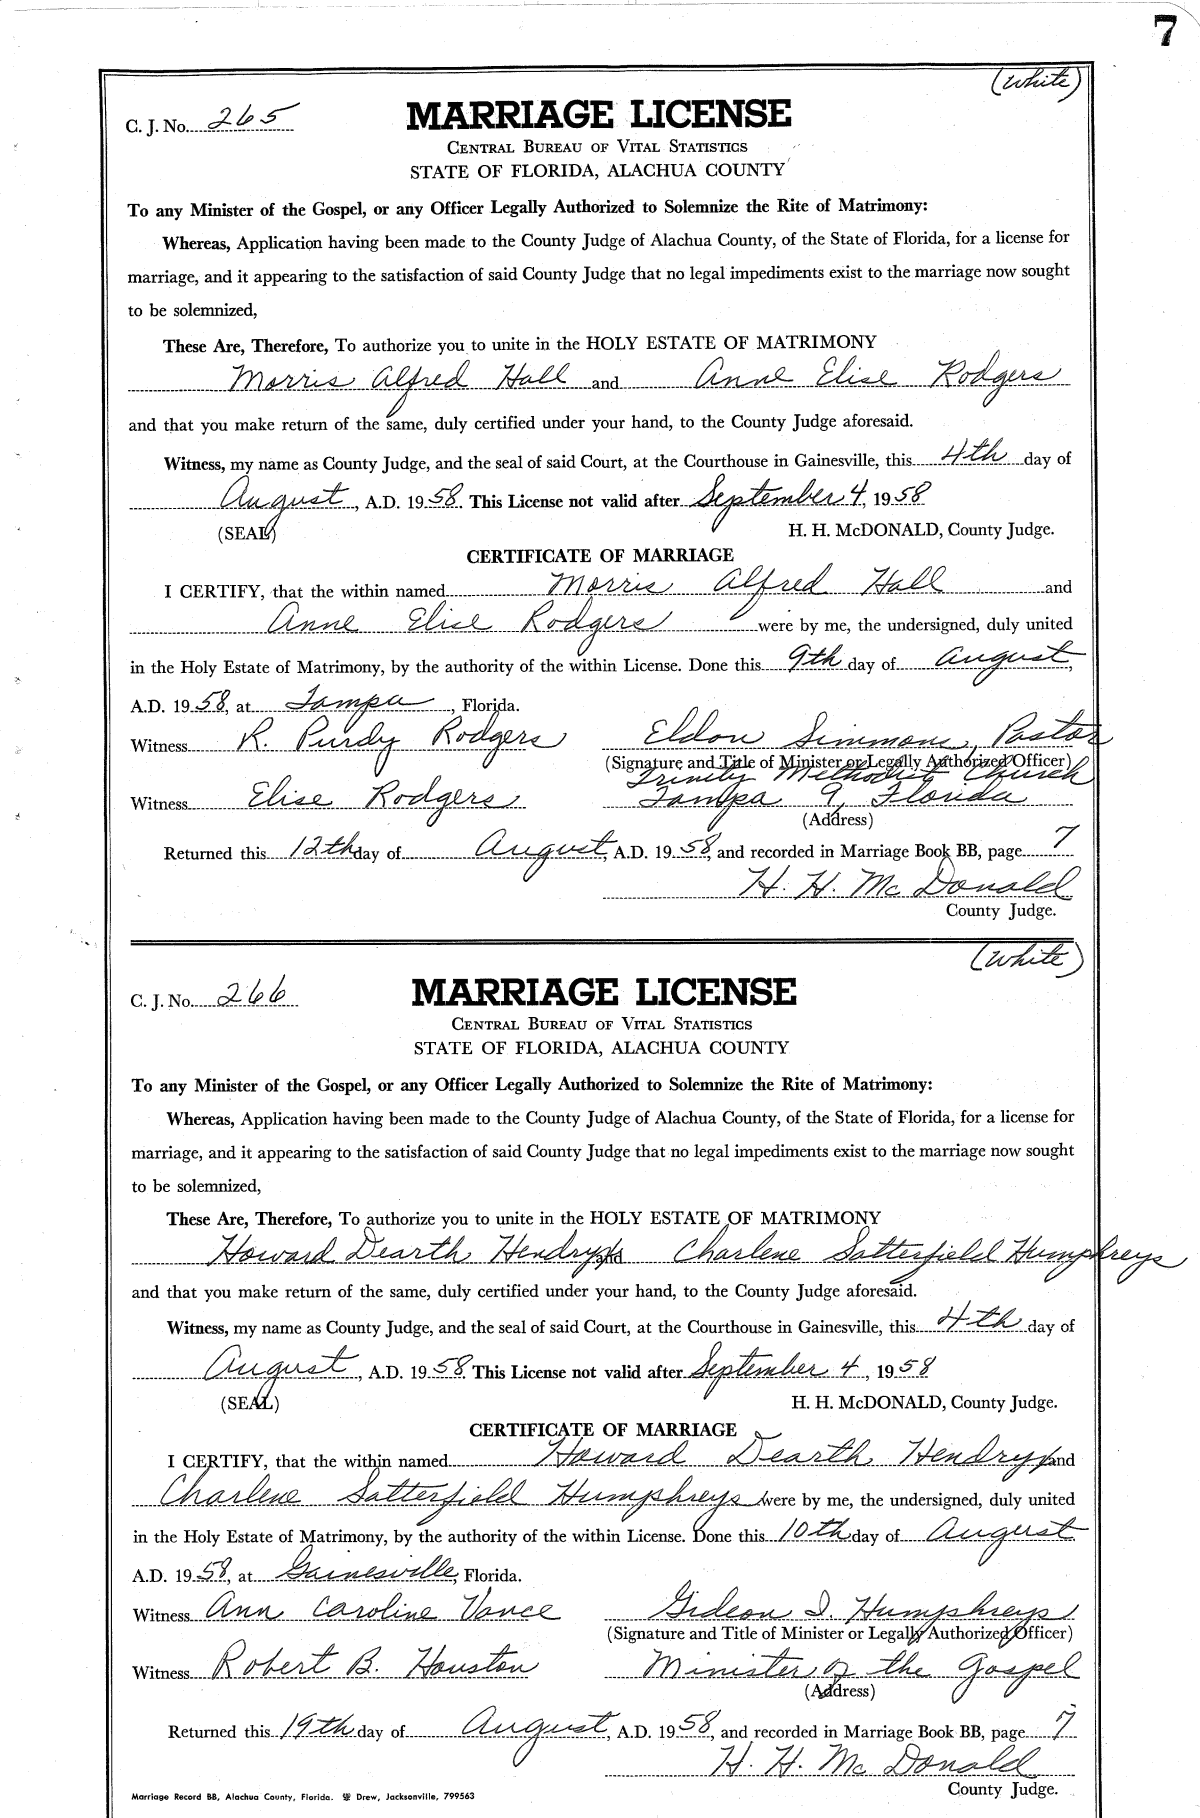 7
(White)
C. J. No. 265
MARRIAGE LICENSE
CENTRAL BUREAU OF VITAL STATISTICS
STATE OF FLORIDA, ALACHUA COUNTY
To any Minister of the Gospel, or any Officer Legally Authorized to Solemnize the Rite of Matrimony:
Whereas, Application having been made to the County Judge of Alachua County, of the State of Florida, for a license for
marriage, and it appearing to the satisfaction of said County Judge that no legal impediments exist to the marriage now sought
to be solemnized,
These Are, Therefore, To authorize you to unite in the HOLY ESTATE OF MATRIMONY
Morris Alfred Hall and Anne Elise Rodgers
and that you make return of the same, duly certified under your hand, to the County Judge aforesaid.
Witness, my name as County Judge, and the seal of said Court, at the Courthouse in Gainesville, this 4th day of
August, A.D. 1958. This License not valid after September 4, 1958
(SEAL) H. H. McDONALD, County Judge.
CERTIFICATE OF MARRIAGE
I CERTIFY, that the within named Morris Alfred Hall and
Anne Elise Rodgers were by me, the undersigned, duly united
in the Holy Estate of Matrimony, by the authority of the within License. Done this 9th day of August,
A.D. 1958, at Tampa, Florida.
Witness R. Purdy Rodgers Eldon Simmons, Pastor
(Signature and Title of Minister or Legally Authorized Officer)
Trinity Methodist Church
Witness Elise Rodgers Tampa 9, Florida
(Address)
Returned this 12th day of August, A.D. 1958, and recorded in Marriage Book BB, page 7
H. H. McDonald
County Judge.
(White)
C. J. No. 266
MARRIAGE LICENSE
CENTRAL BUREAU OF VITAL STATISTICS
STATE OF FLORIDA, ALACHUA COUNTY
To any Minister of the Gospel, or any Officer Legally Authorized to Solemnize the Rite of Matrimony:
Whereas, Application having been made to the County Judge of Alachua County, of the State of Florida, for a license for
marriage, and it appearing to the satisfaction of said County Judge that no legal impediments exist to the marriage now sought
to be solemnized,
These Are, Therefore, To authorize you to unite in the HOLY ESTATE OF MATRIMONY
Howard Dearth Hendryx and Charlene Satterfield Humphreys
and that you make return of the same, duly certified under your hand, to the County Judge aforesaid.
Witness, my name as County Judge, and the seal of said Court, at the Courthouse in Gainesville, this 4th day of
August, A.D. 1958. This License not valid after September 4, 1958
(SEAL) H. H. McDONALD, County Judge.
CERTIFICATE OF MARRIAGE
I CERTIFY, that the within named Howard Dearth Hendryx and
Charlene Satterfield Humphreys were by me, the undersigned, duly united
in the Holy Estate of Matrimony, by the authority of the within License. Done this 10th day of August
A.D. 1958, at Gainesville, Florida.
Witness Ann Caroline Vance Gideon I. Humphreys
(Signature and Title of Minister or Legally Authorized Officer)
Witness Robert B. Houston Minister of the Gospel
(Address)
Returned this 19th day of August, A.D. 1958, and recorded in Marriage Book BB, page 7
H. H. McDonald
County Judge.
Marriage Record BB, Alachua County, Florida. Drew, Jacksonville, 799563